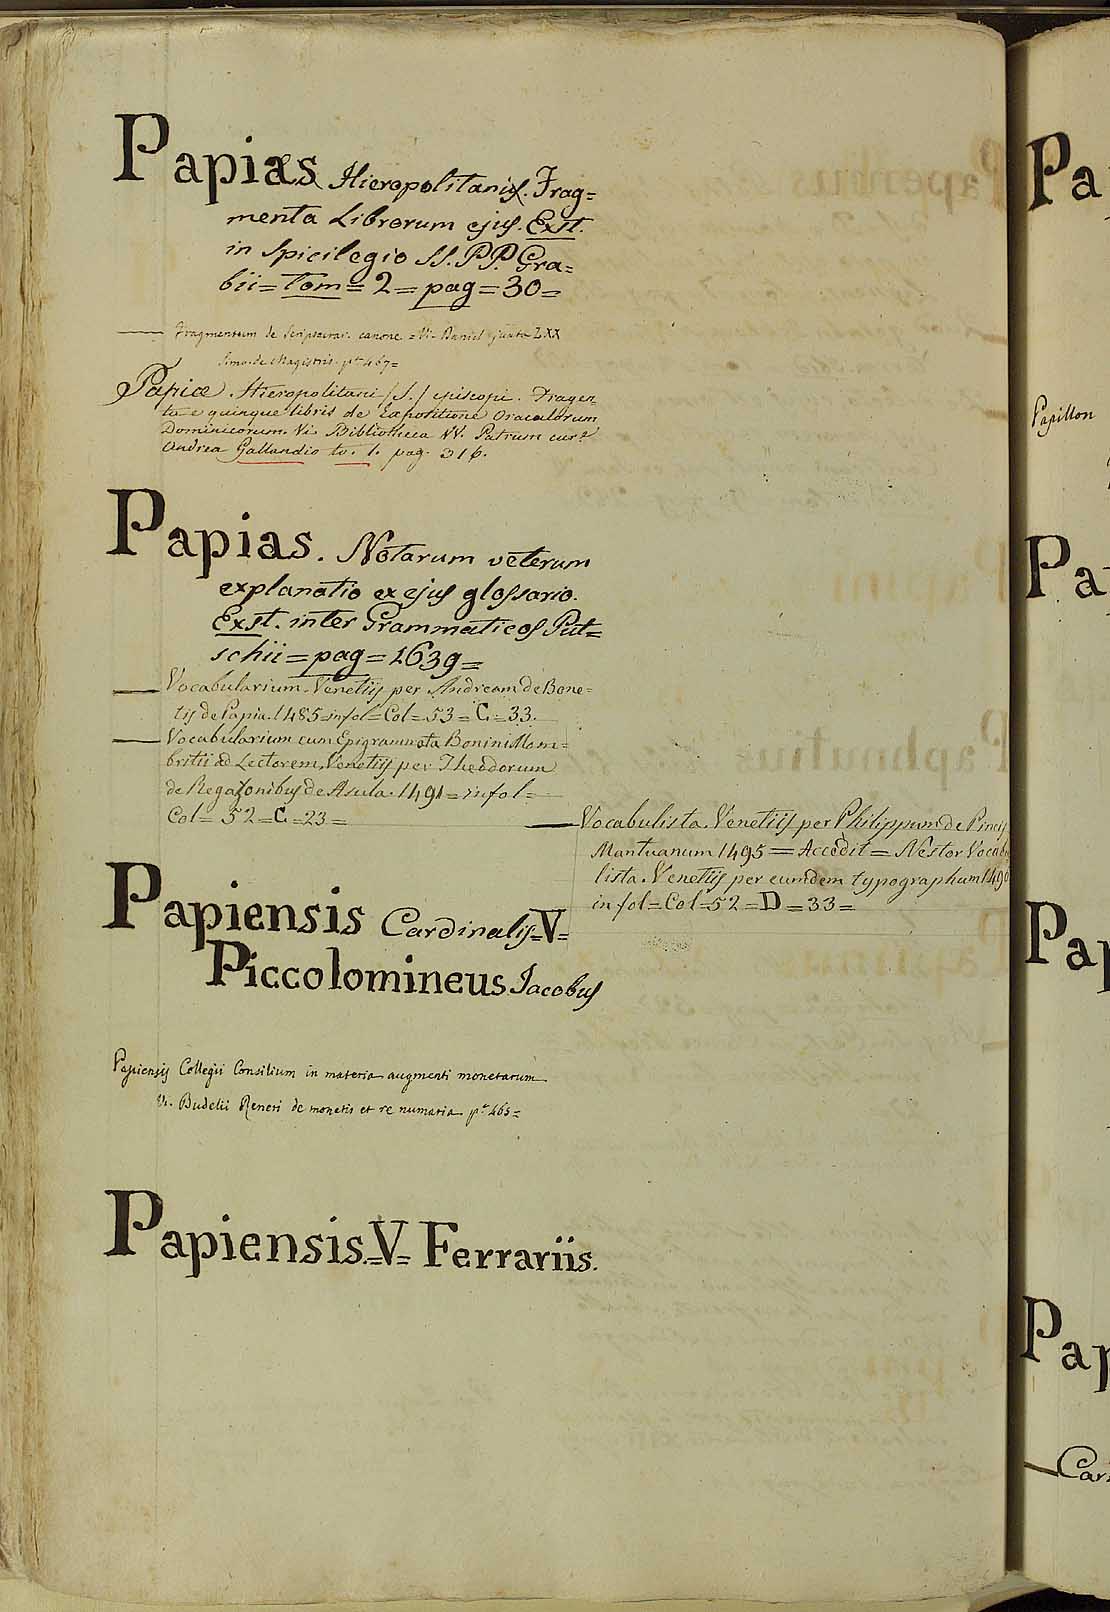 Papiæs Hieropolitanus. Frag=
menta Librorum ejus. Exst.
in Spicilegio SS. PP. Gra=
bii = Tom = 2 = pag = 30 =
Fragmentum de Scripturar. canone = Vi. Daniel juxta LXX
Simo. de Magistris. pag 467 =
Papiæ. Hieropolitani (S.) episcopi. Fragen
ta e quinque libris de Expositione Oraculorum
Dominicorum. Vi. Bibliotheca VV. Patrum cura
Andrea Gallandio to. 1. pag. 316.
Papias. Notarum veterum
explanatio ex ejus glossario.
Exst. inter Grammaticos Put=
schii = pag = 1639 =
Vocabularium. Venetiis per Andream de Bone=
tis de Papia. 1485 = in fol = Col = 53 = C = 33.
Vocabularium cum Epigrammata Bonini Mom=
britii ad Lectorem. Venetiis per Theodorum
de Regazonibus de Asula. 1491 = in fol =
Col = 52 = C = 23 =
Vocabulista. Venetiis per Philippum de Pincis
Mantuanum 1495 = Accedit = Nestor Vocabu
lista. Venetiis per eumdem typographum 1496
in fol = Col = 52 = D = 33 =
Papiensis Cardinalis = V =
Piccolomineus Jacobus
Papiensis Collegii Consilium in materia augmenti monetarum
Vi. Budelii Reneri de monetis et re numaria pag 465 =
Papiensis. = V = Ferrariis.
Pa
Papillon
Pa
Pap
Pap
Car